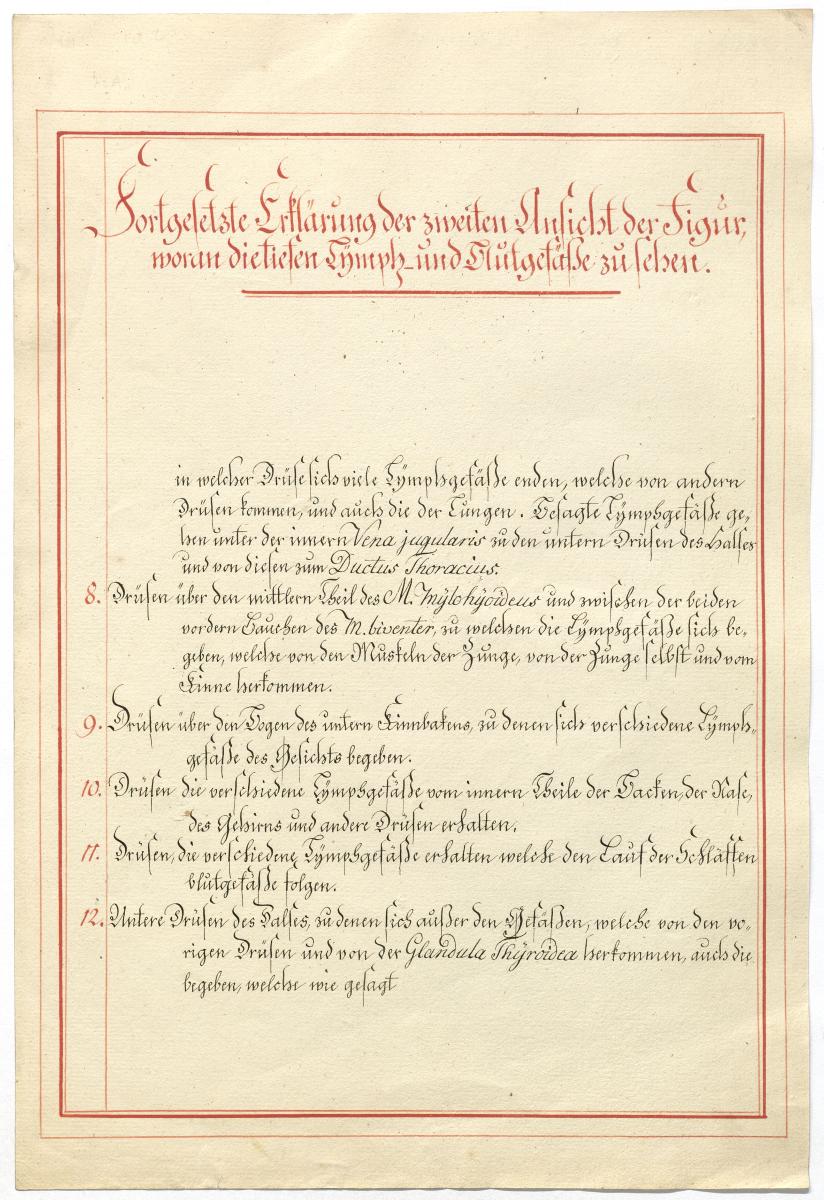 Fortgesetzte Erklärung der zweiten Ansicht der Figur,
woran die tiefen Lÿmph- und Blutgefäße zu sehen.
in welcher Drüse sich viele Lÿmphgefäße enden, welche von andern
Drüsen kommen, und auch die der Lungen. Besagte Lÿmphgefäße ge-
hen unter der innern Vena jugularis zu den untern Drüsen des Halses
und von diesen zum Ductus Thoracius.
8. Drüsen über den mittlern Theil des M. mÿlohÿoideus und zwischen der beiden
vordern Bauchen des M. biventer, zu welchen die Lÿmphgefäße sich be-
geben, welche von den Muskeln der Zunge, von der Zunge selbst und vom
Kinne herkommen.
9. Drüsen über den Bogen des untern Kinnbakens, zu denen sich verschiedene Lÿmph-
gefäße des Gesichts begeben.
10. Drüsen die verschiedene Lÿmphgefäße vom innern Theile der Backen, der Nase,
des Gehirns und andere Drüsen erhalten.
11. Drüsen, die verschiedene Lÿmphgefäße erhalten welche den Lauf der Schläffen
blutgefäße folgen.
12. Untere Drüsen des Halses, zu denen sich außer den Gefäßen, welche von den vo-
rigen Drüsen und von der Glandula Thÿroidea herkommen, auch die
begeben, welche wie gesagt